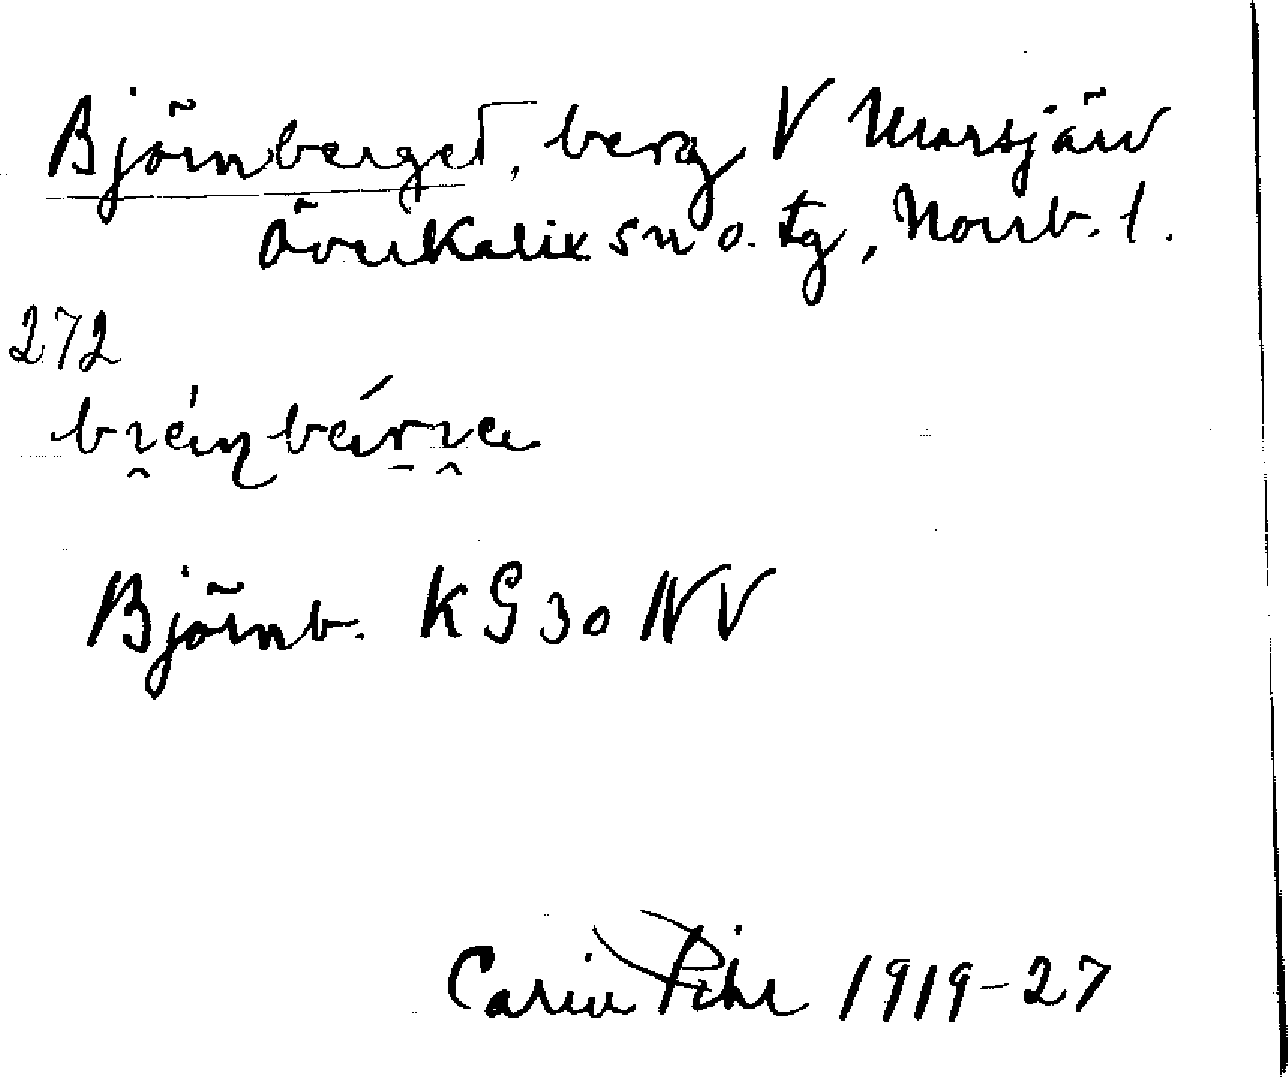 Björnberget, berg V Morsjärv
Överkalix sn o. tg, Norrb. l.
272
Björnb. KG 30 NV
Carin Pihl 1919-27